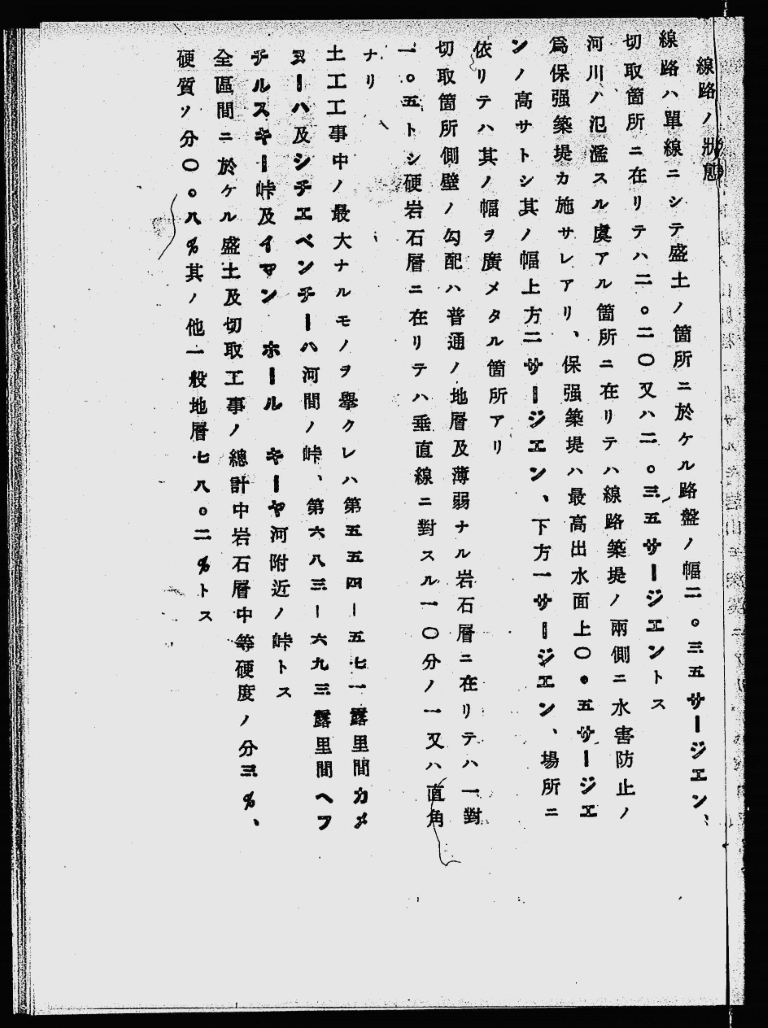 線路ノ狀態
線路ハ單線ニシテ盛土ノ箇所ニ於ケル路盤ノ幅二。三五サージエン、
切取箇所ニ在リテハ二。二〇又ハ二。三五サージエントス
河川ノ氾濫スル虞アル箇所ニ在リテハ線路築堤ノ兩側ニ水害防止ノ
爲保强築堤カ施サレアリ、保强築堤ハ最高出水面上〇。五サージエ
ンノ高サトシ其ノ幅上方二サージエン、下方一サージエン、場所ニ
依リテハ其ノ幅ヲ廣メタル箇所アリ
切取箇所側壁ノ勾配ハ普通ノ地層及薄弱ナル岩石層ニ在リテハ一對
一。五トシ硬岩石層ニ在リテハ垂直線ニ對スル一〇分ノ一又ハ直角
ナリ
土工工事中ノ最大ナルモノヲ擧クレハ第五五四ー五七一露里間カメ
ヌーハ及シチエベンチーハ河間ノ峠、第六八三ー六九三露里間ヘフ
チルスキー峠及イマン ホール キーヤ河附近ノ峠トス
全區間ニ於ケル盛土及切取工事ノ總計中岩石層中等硬度ノ分三%、
硬質ノ分〇。八%其ノ他一般地層七八。二%トス